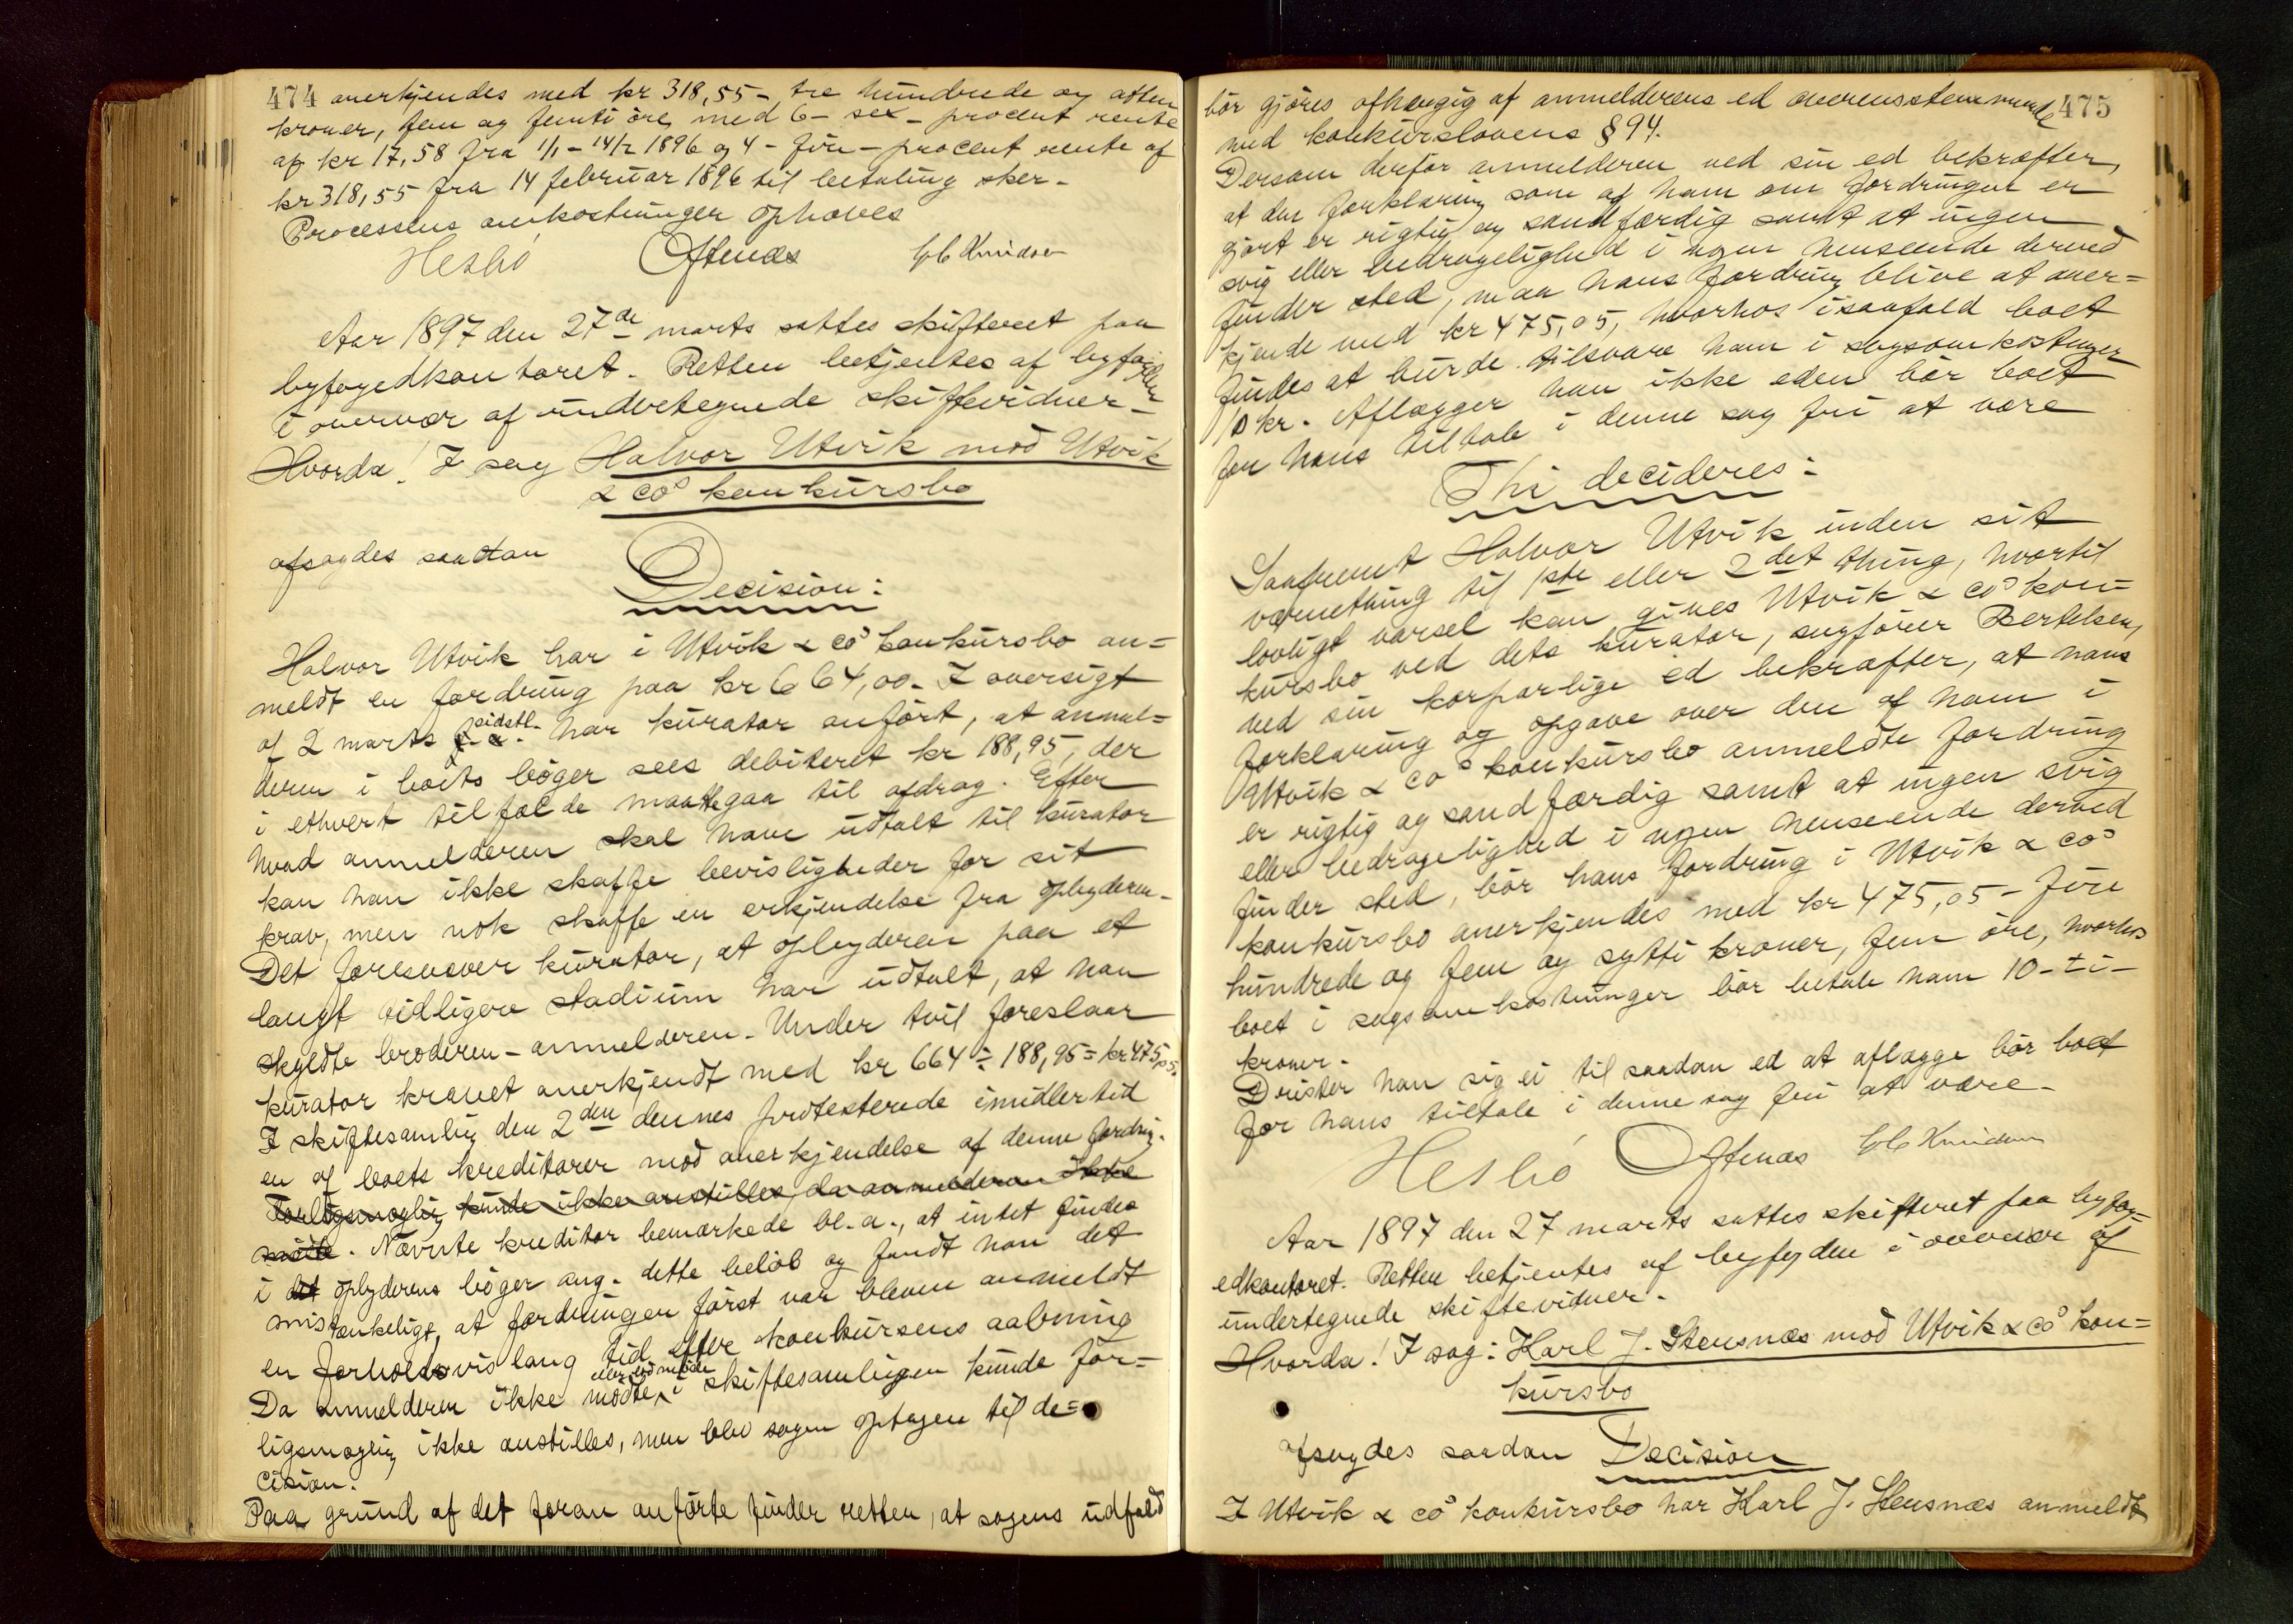 474 anerkjendes med kr 318,55 - tre hundrede og atten
kroner, fem og femti öre, med 6 - sex - procent rente
af kr 17,58 fra 1/1 - 14/2 1896 og 4 - fire - procent rente af
kr 318,55 fra 14 februar 1896 til betaling sker.
Processens omkostninger ophæves
Hesbö Oftenæs
Aar 1897 den 27de marts sattes skifteret paa
byfogedkontoret. Retten betjentes af byfogden
i overvær af undertegnede skiftevidner.
Hvorda! I sag Halvor Utvik mod Utvik
& Co's konkursbo
afsagdes saadan
Decision:
Halvor Utvik har i Utvik & Co's konkursbo an=
meldt en fordring paa kr 664,00. I oversigt
af 2 marts sidstl. har kurator anfört, at anmel=
deren i boets böger sees debiteret kr 188,95, der
i ethvert tilfælde maatte gaa til afdrag. Efter
hvad anmelderen skal have udtalt til kurator
kan han ikke skaffe bevisligheder for sit
krav, men nok skaffe en erkjendelse fra opbyderen.
Det foresvæver kurator, at opbyderen paa et
langt tidligere stadium har udtalt, at han
skyldte broderen - anmelderen. Under tvil foreslaar
kurator kravet anerkjendt med kr 664 ÷ 188,95 = kr 475,05.
I skiftesamling den 2den dennes protesterede imidlertid
en af boets kreditorer mod anerkjendelse af denne fordring.
Forligsmægling kunde ikke anstilles, da anmelderen ikke
mötte. Nævnte kreditor bemærkede bl. a., at intet findes
i det opbyderens böger ang. dette belöb og fandt han det
mistænkeligt, at fordringen först var bleven anmeldt
en forholdsvis lang tid efter konkursens aabning
Da anmelderen ikke mödte eller lod möde i skiftesamlingen kunde for=
ligsmægling ikke anstilles, men blev sagen optagen til de=
cision.
Paa grund af det foran anförte finder retten, at sagens udfald
475
bör gjöres afhængig af anmelderens ed overensstemmende
med konkurslovens § 94.
Dersom derfor anmelderen ved sin ed bekræfter,
at den forklaring som af ham om fordringen er
gjort er rigtig og sandfærdig samt at ingen
svig eller bedragelighed i nogen henseende derved
finder sted, maa hans fordring blive at aner=
kjende med kr 475,05, hvorhos isaafald boet
findes at burde tilsvare ham i sagsomkostninger
10 kr. Aflægger han ikke eden bör boet
for hans tiltale i denne sag fri at være
Thi decideres:
Saafremt Halvor Utvik inden sit
værnething til 1ste eller 2det thing, hvortil
lovligt varsel kan gives Utvik & Co's kon=
kursbo ved dets kurator, sagförer Bertelsen,
ved sin korporlige ed bekræfter, at hans
forklaring og opgave over den af ham i
Utvik & Co's konkursbo anmeldte fordring
er rigtig og sandfærdig samt at ingen svig
eller bedragelighed i nogen henseende derved
finder sted, bör hans fordring i Utvik & Co's
konkursbo anerkjendes med kr 475,05 - fire
hundrede og fem og sytti kroner, fem öre, hvorhos
boet i sagsomkostninger bör betale ham 10 - ti -
kroner.
Drister han sig ei til saadan ed at aflægge bör boet
for hans tiltale i denne sag fri at være.
Hesbö Oftenæs
Aar 1897 den 27 marts sattes skifteret paa byfog=
edkontoret. Retten betjentes af byfogden i overvær af
undertegnede skiftevidner.
Hvorda! I sag: Karl J. Stensnæs mod Utvik & Co's kon=
kursbo
afsagdes saadan Decision
I Utvik & Co's konkursbo har Karl J. Stensnæs anmeldt